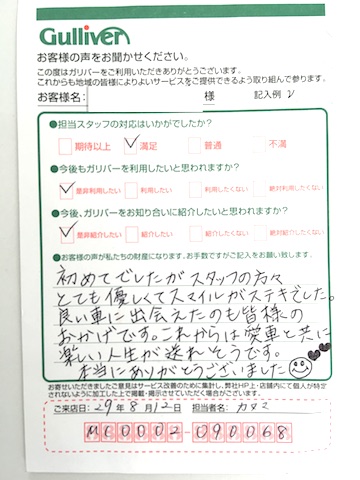 Gulliver
お客様の声をお聞かせください。
この度はガリバーをご利用いただきありがとうございます。
これからも地域の皆様によりよいサービスをご提供できるよう取り組んで参ります。
お客様名: 様 記入例 ✓
●担当スタッフの対応はいかがでしたか?
期待以上 満足 普通 不満
●今後もガリバーを利用したいと思われますか?
是非利用したい 利用したい 利用したくない 絶対利用したくない
●今後、ガリバーをお知り合いに紹介したいと思われますか?
是非紹介したい 紹介したい 紹介したくない 絶対紹介したくない
●お客様の声が私たちの財産になります。お手数ですがご記入をお願い致します。
初めてでしたがスタッフの方々
とても優しくてスマイルがステキでした。
良い車に出会えたのも皆様の
おかげです。これからは愛車と共に
楽しい人生が送れそうです。
本当にありがとうございました
お寄せいただきましたご意見はサービス改善のために集計し、弊社HP・店舗内にて個人が特定
されないように加工した上で掲載・掲示させていただく場合がございます。
ご来店日: 29年 8月 12日 担当者名: カジマ
MC0002-090068